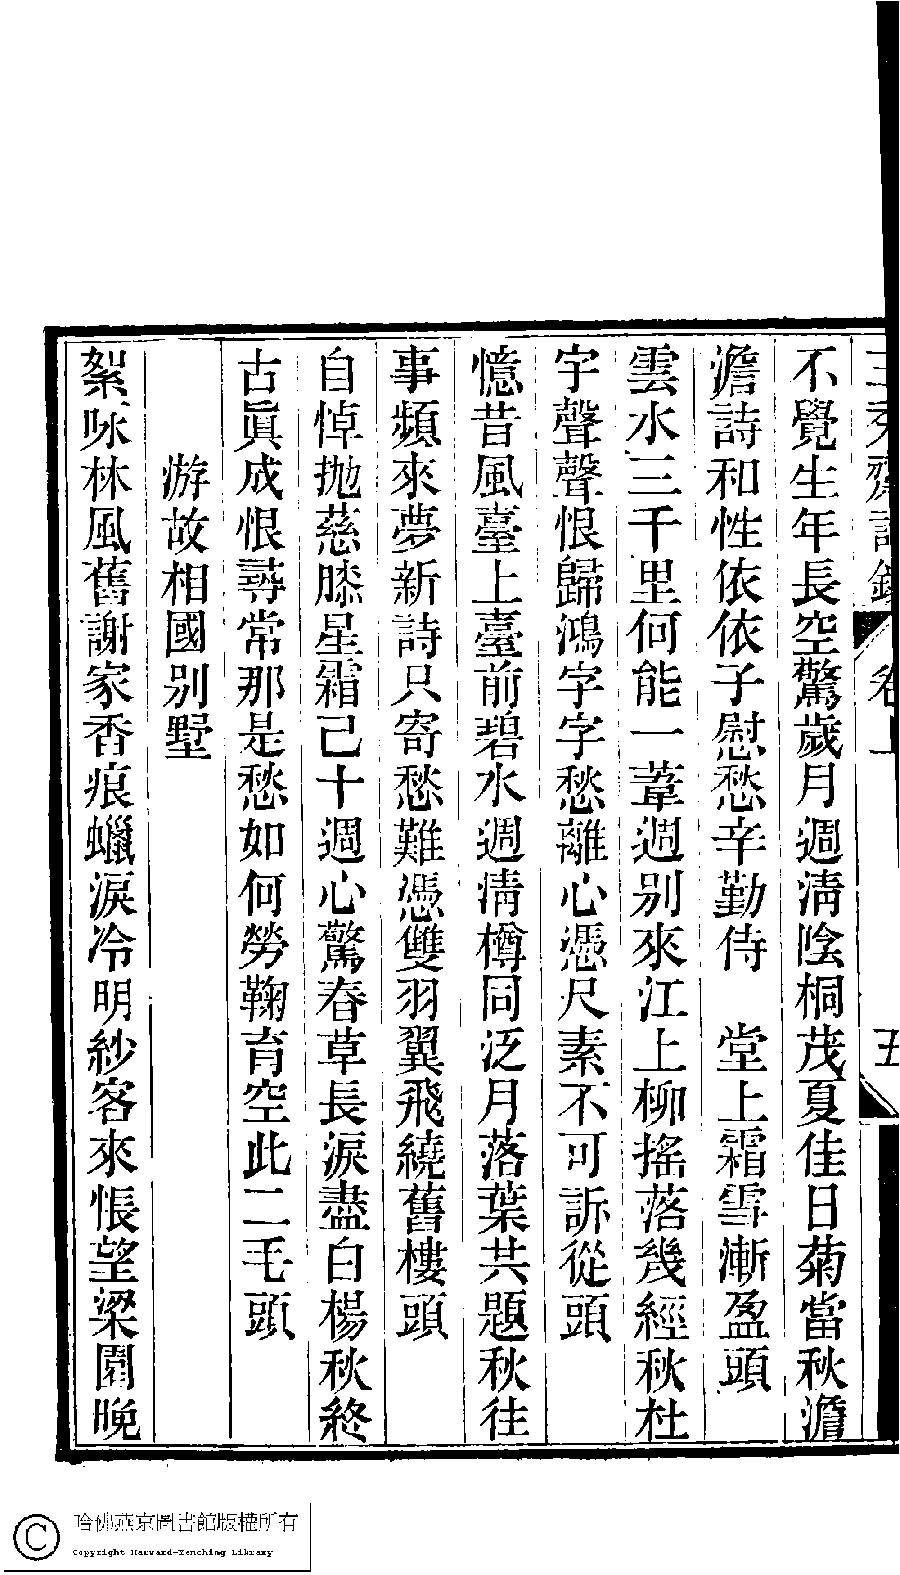 三秀齋詩鈔 卷上 五
不覺生年長空驚歲月週淸陰桐茂夏佳日菊當秋澹
澹詩和性依依子慰愁辛勤侍 堂上霜雪漸盈頭
雲水三千里何能一葦週別來江上柳搖落幾經秋杜
宇聲聲恨歸鴻字字愁離心憑尺素不可訴從頭
憶昔風臺上臺前碧水週淸樽同泛月落葉共題秋往
事頻來夢新詩只寄愁難憑雙羽翼飛繞舊樓頭
自悼抛慈膝星霜已十週心驚春草長淚盡白楊秋終
古眞成恨尋常那是愁如何勞鞠育空此二毛頭
游故相國别墅
絮咏林風舊謝家香痕蠟淚冷明紗客來悵望梁園晚
哈佛燕京圖書館版權所有
Copyright Harvard-Yenching Library